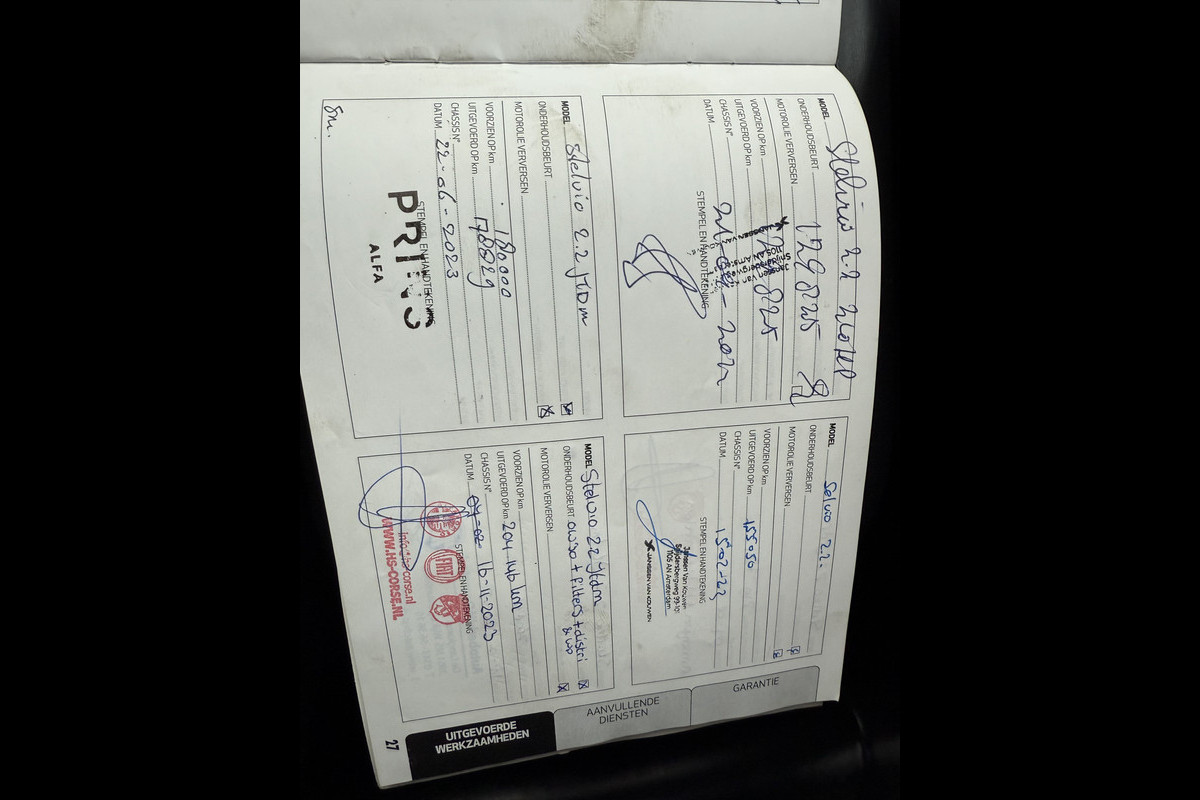 MODEL Stelvio 2.2
ONDERHOUDSBEURT 129825
MOTOROLIE VERVERSEN
VOORZIEN OP km
UITGEVOERD OP km
CHASSIS N°
DATUM
STEMPEL EN HANDTEKENING
JANSSEN VAN
Janssen van
Snijdersbergweg
1105 AN Amsterdam
MODEL Selvio 2.2.
ONDERHOUDSBEURT
MOTOROLIE VERVERSEN
VOORZIEN OP km
UITGEVOERD OP km 155050
CHASSIS N°
DATUM 15-02-23
STEMPEL EN HANDTEKENING
Janssen Van Kouwen
Snijdersbergweg 99-101
1105 AN Amsterdam
JANSSEN VAN KOUWEN
MODEL Stelvio 2.2 JTDm
ONDERHOUDSBEURT
MOTOROLIE VERVERSEN
VOORZIEN OP km 180000
UITGEVOERD OP km 178829
CHASSIS N°
DATUM 22-06-2023
STEMPEL EN HANDTEKENING
PRINS
ALFA
MODEL Stelvio 2.2 Jtdm
ONDERHOUDSBEURT owso + filters + distri
& wp
MOTOROLIE VERVERSEN
VOORZIEN OP km
UITGEVOERD OP km 204 146 km
CHASSIS N°
DATUM 16-11-2023
STEMPEL EN HANDTEKENING
FIAT
corse.nl
WWW.HS-CORSE.NL
GARANTIE
AANVULLENDE
DIENSTEN
UITGEVOERDE
WERKZAAMHEDEN
27